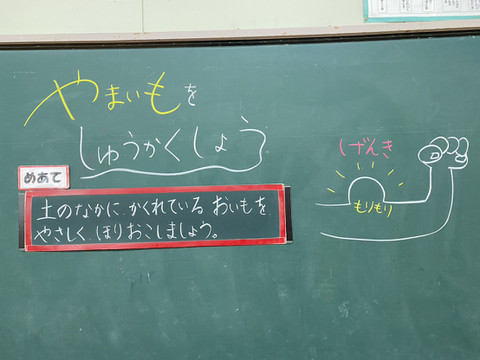 やまいもを
しゅうかくしよう
めあて
土のなかに かくれている おいもを
やさしく ほりおこしましょう。
げんき
もりもり